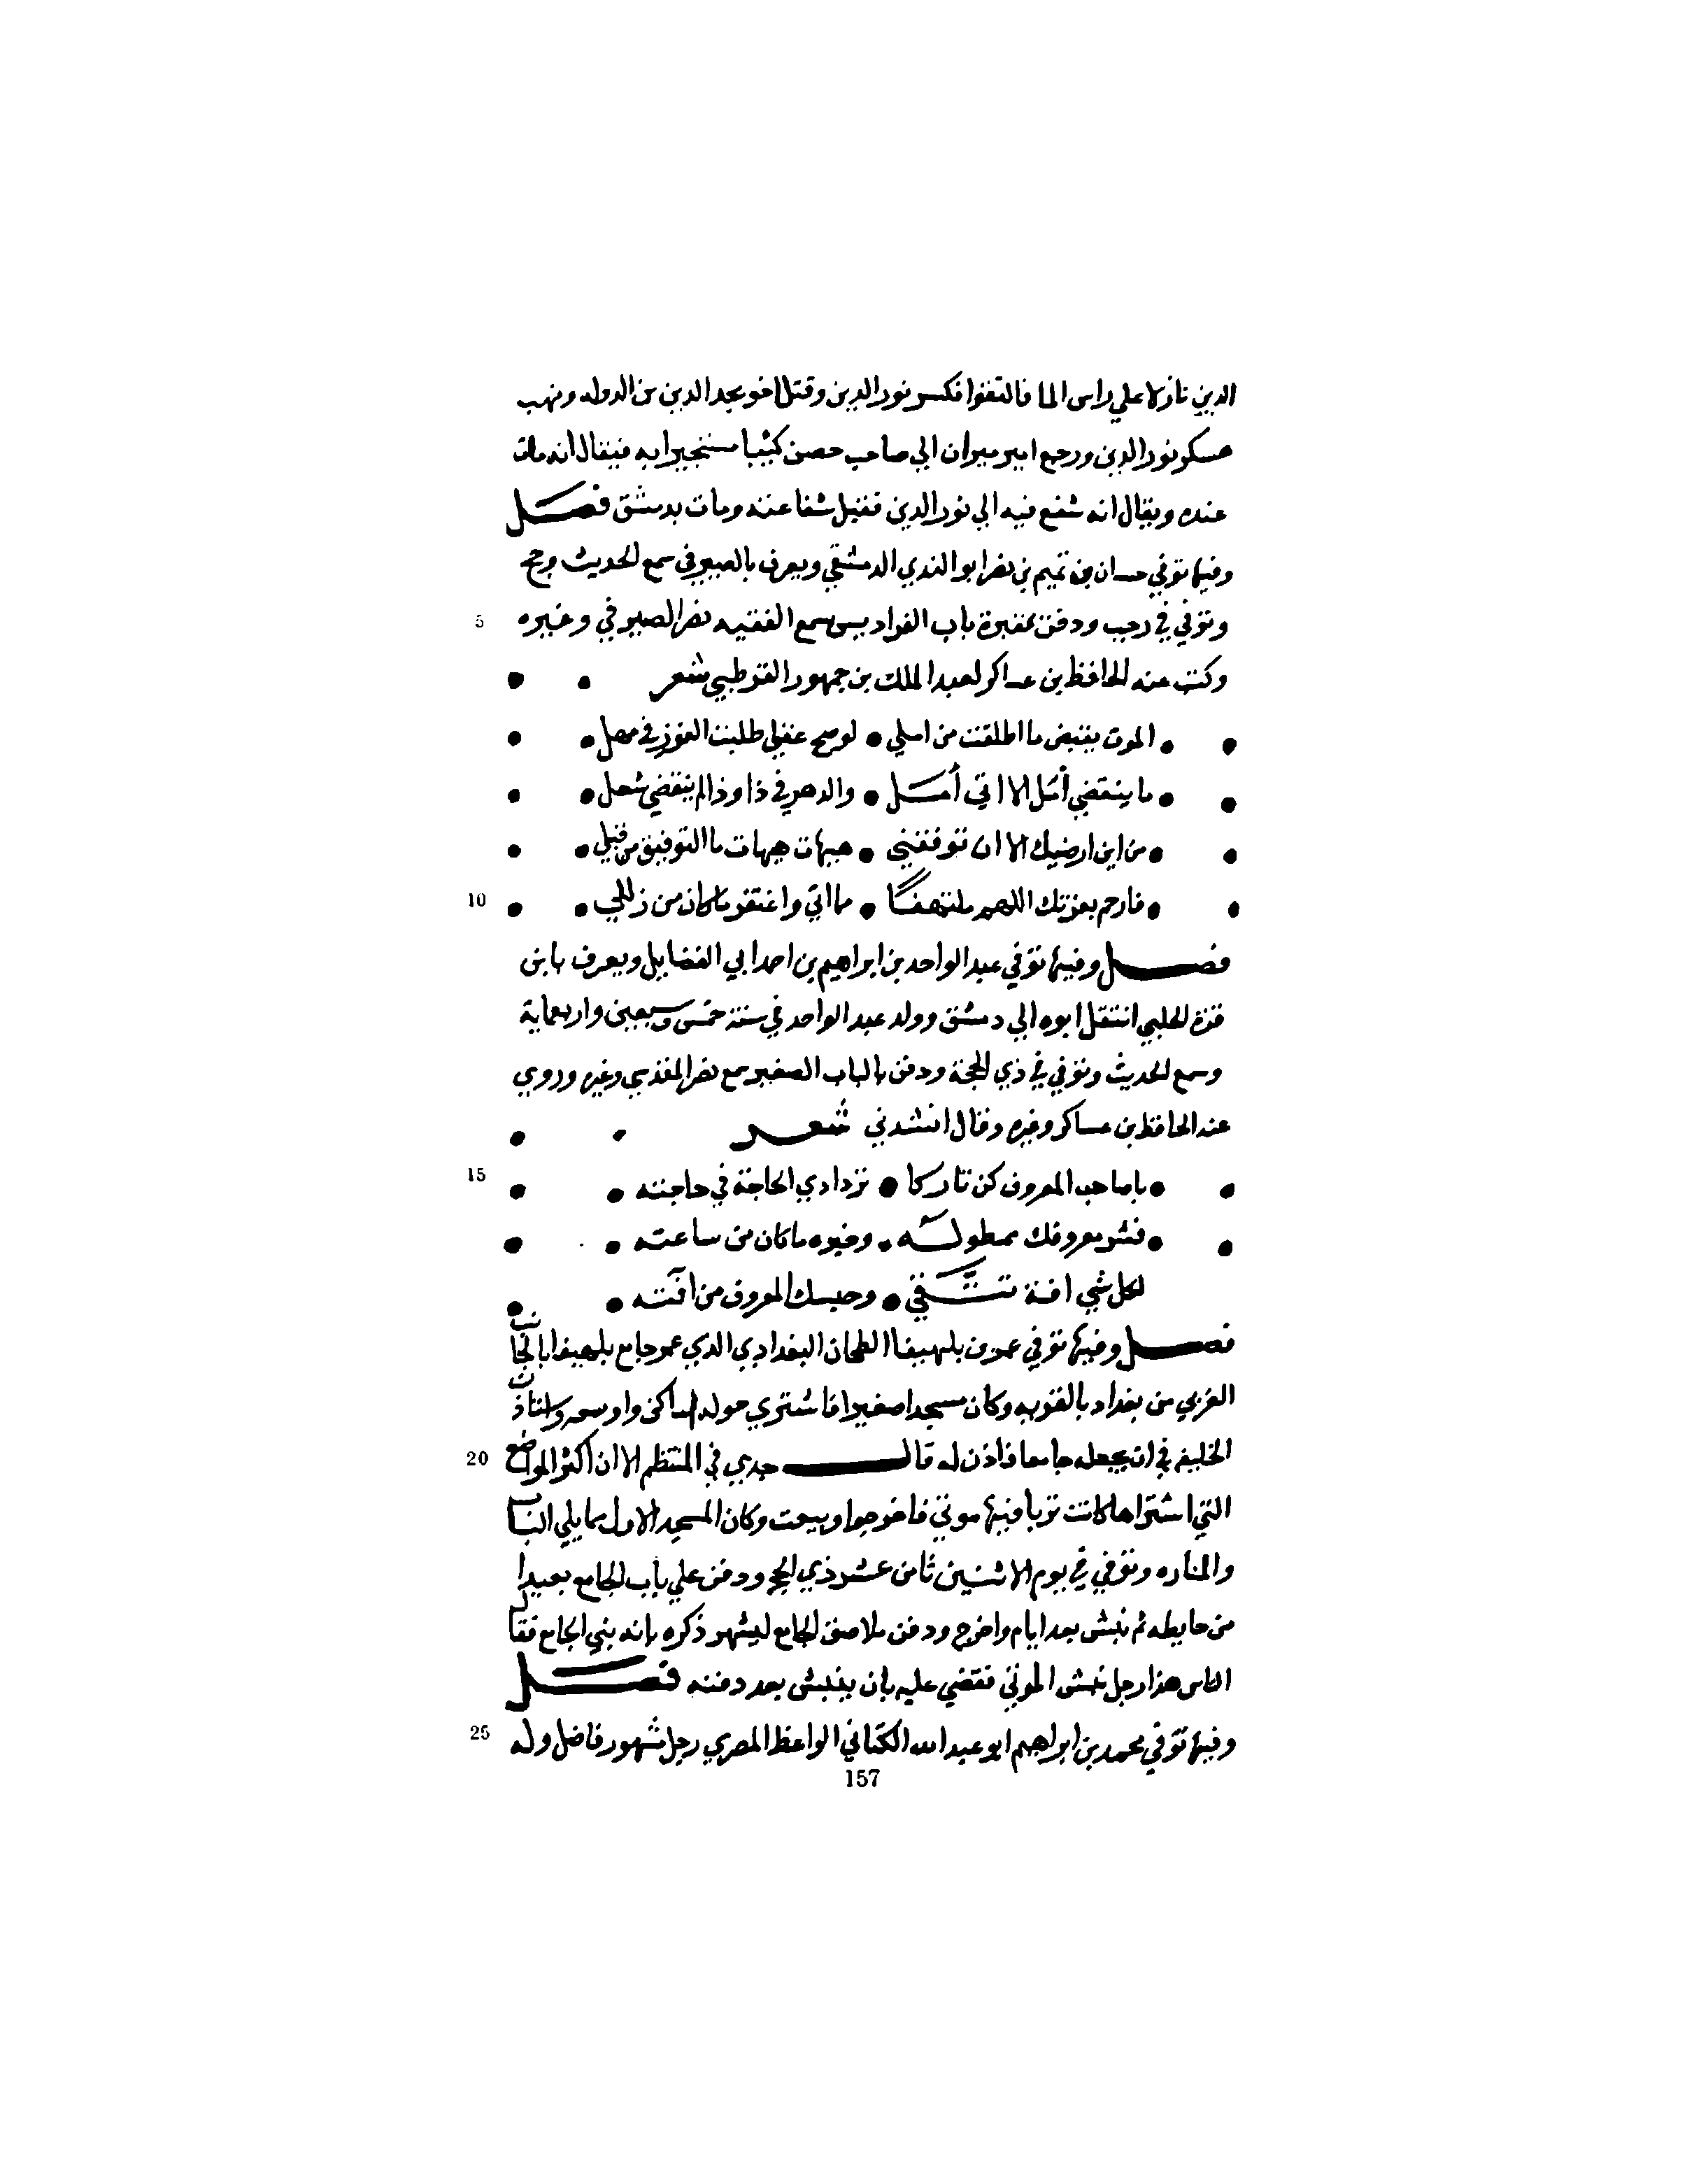 الدين نازلا علي راس الما فالتقوا فكسر نور الدين وقتل اخو مجد الدين بن الدوله ونهب
عسكر نور الدين ورجع امير ميران الي صاحب حصن كيفا مستجيرا به فيقال انه مات
عنده ويقال انه شفع فيه الي نور الدين فقبل شفاعته ومات بدمشق فصل
وفيها توفي حسان بن تميم بن نصر ابو الندي الدمشقي ويعرف بالصيرفي سمع الحديث وحج
5 وتوفي في رجب ودفن بمقبرة باب الفراديس سمع الفقيه نصر الصيرفي وغيره
وكتب عنه الحافظ بن عساكر لعبد الملك بن جمهور القرطبي شعر
الموت يقبض ما اطلقت من املي • لو صح عقلي طلبت الفوز في مهل
ما ينقضي أمل الا اتي أمل • والدهر في ذا وذا لم ينقضي شغل
من اين ارضيك الا ان توفقني • هيهات هيهات ما التوفيق من قبلي
10 فارحم بعزتك اللهم ملتهفا • مما اتي واغتفر ما كان من زللي
فصل وفيها توفي عبد الواحد بن ابراهيم بن احمد ابي الفضايل ويعرف بابن
قزة الحلبي انتقل ابوه الي دمشق وولد عبد الواحد في سنة خمس وسبعين واربعماية
وسمع الحديث وتوفي في ذي الحجة ودفن بالباب الصغير سمع نصر المقدسي وغيره وروي
عنه الحافظ بن عساكر وغيره وقال انشدني شعر
15 يا صاحب المعروف كن تاركا • تردادي الحاجة في حاجته
فشر معروفك ممطوله • وخيره ما كان من ساعته
لكل شي افة تتقي • وحبسك المعروف من آفته
فصل وفيها توفي عمر بن بهليقا الطحان البغدادي الذي عمر جامع بهليقا بالجانب
الغربي من بغداد بالقريه وكان مسجدا صغيرا فاشتري حوله اماكن واوسعه واستاذن
20 الخليفه في ان يجعله جامعا فاذن له قال جدي في المنتظم الا ان اكثر المواضع
التي اشتراها كانت تربا فيها موتي فاخرجوا وبيعت وكان المسجد الاول مما يلي الباب
والمناره وتوفي في يوم الاثنين ثامن عشر ذي الحجه ودفن علي باب الجامع بعيدا
من حايطه ثم نبش بعد ايام واخرج ودفن ملاصق الجامع ليشهر ذكره بانه بني الجامع فقال
الناس هذا رجل نبش الموتي فقضي عليه بان ينبش بعد دفنه فصل
25 وفيها توفي محمد بن ابراهيم ابو عبد الله الكتاني الواعظ المصري رجل مشهور فاضل وله
157